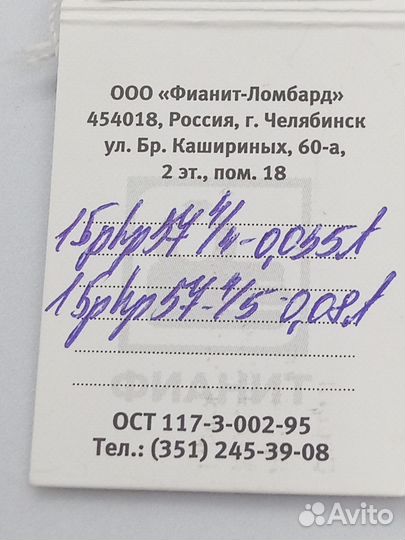 ООО «Фианит-Ломбард»
454018, Россия, г. Челябинск
ул. Бр. Кашириных, 60-а,
2 эт., пом. 18
1БркКр57 4/4-0,055л
1БркКр57-4/5-0,08л
ФИАНИТ
ОСТ 117-3-002-95
Тел.: (351) 245-39-08
Avito